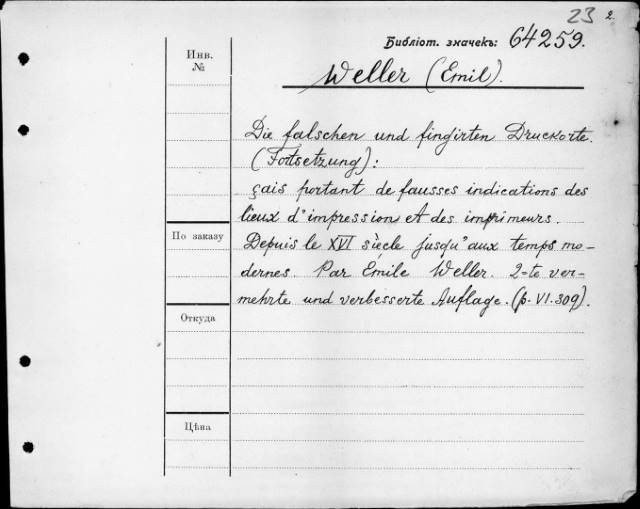 23 2.
Библіот. значекъ: 64259.
Инв.
№
Weller (Emil).
Die falschen und fingirten Druckorte.
(Fortsetzung):
çais portant de fausses indications des
lieux d'impression et des imprimeurs.
По заказу
Depuis le XVI siècle jusqu'aux temps mo-
dernes. Par Émile Weller. 2-te ver-
mehrte und verbesserte Auflage. (p. VI. 309).
Откуда
Цѣна